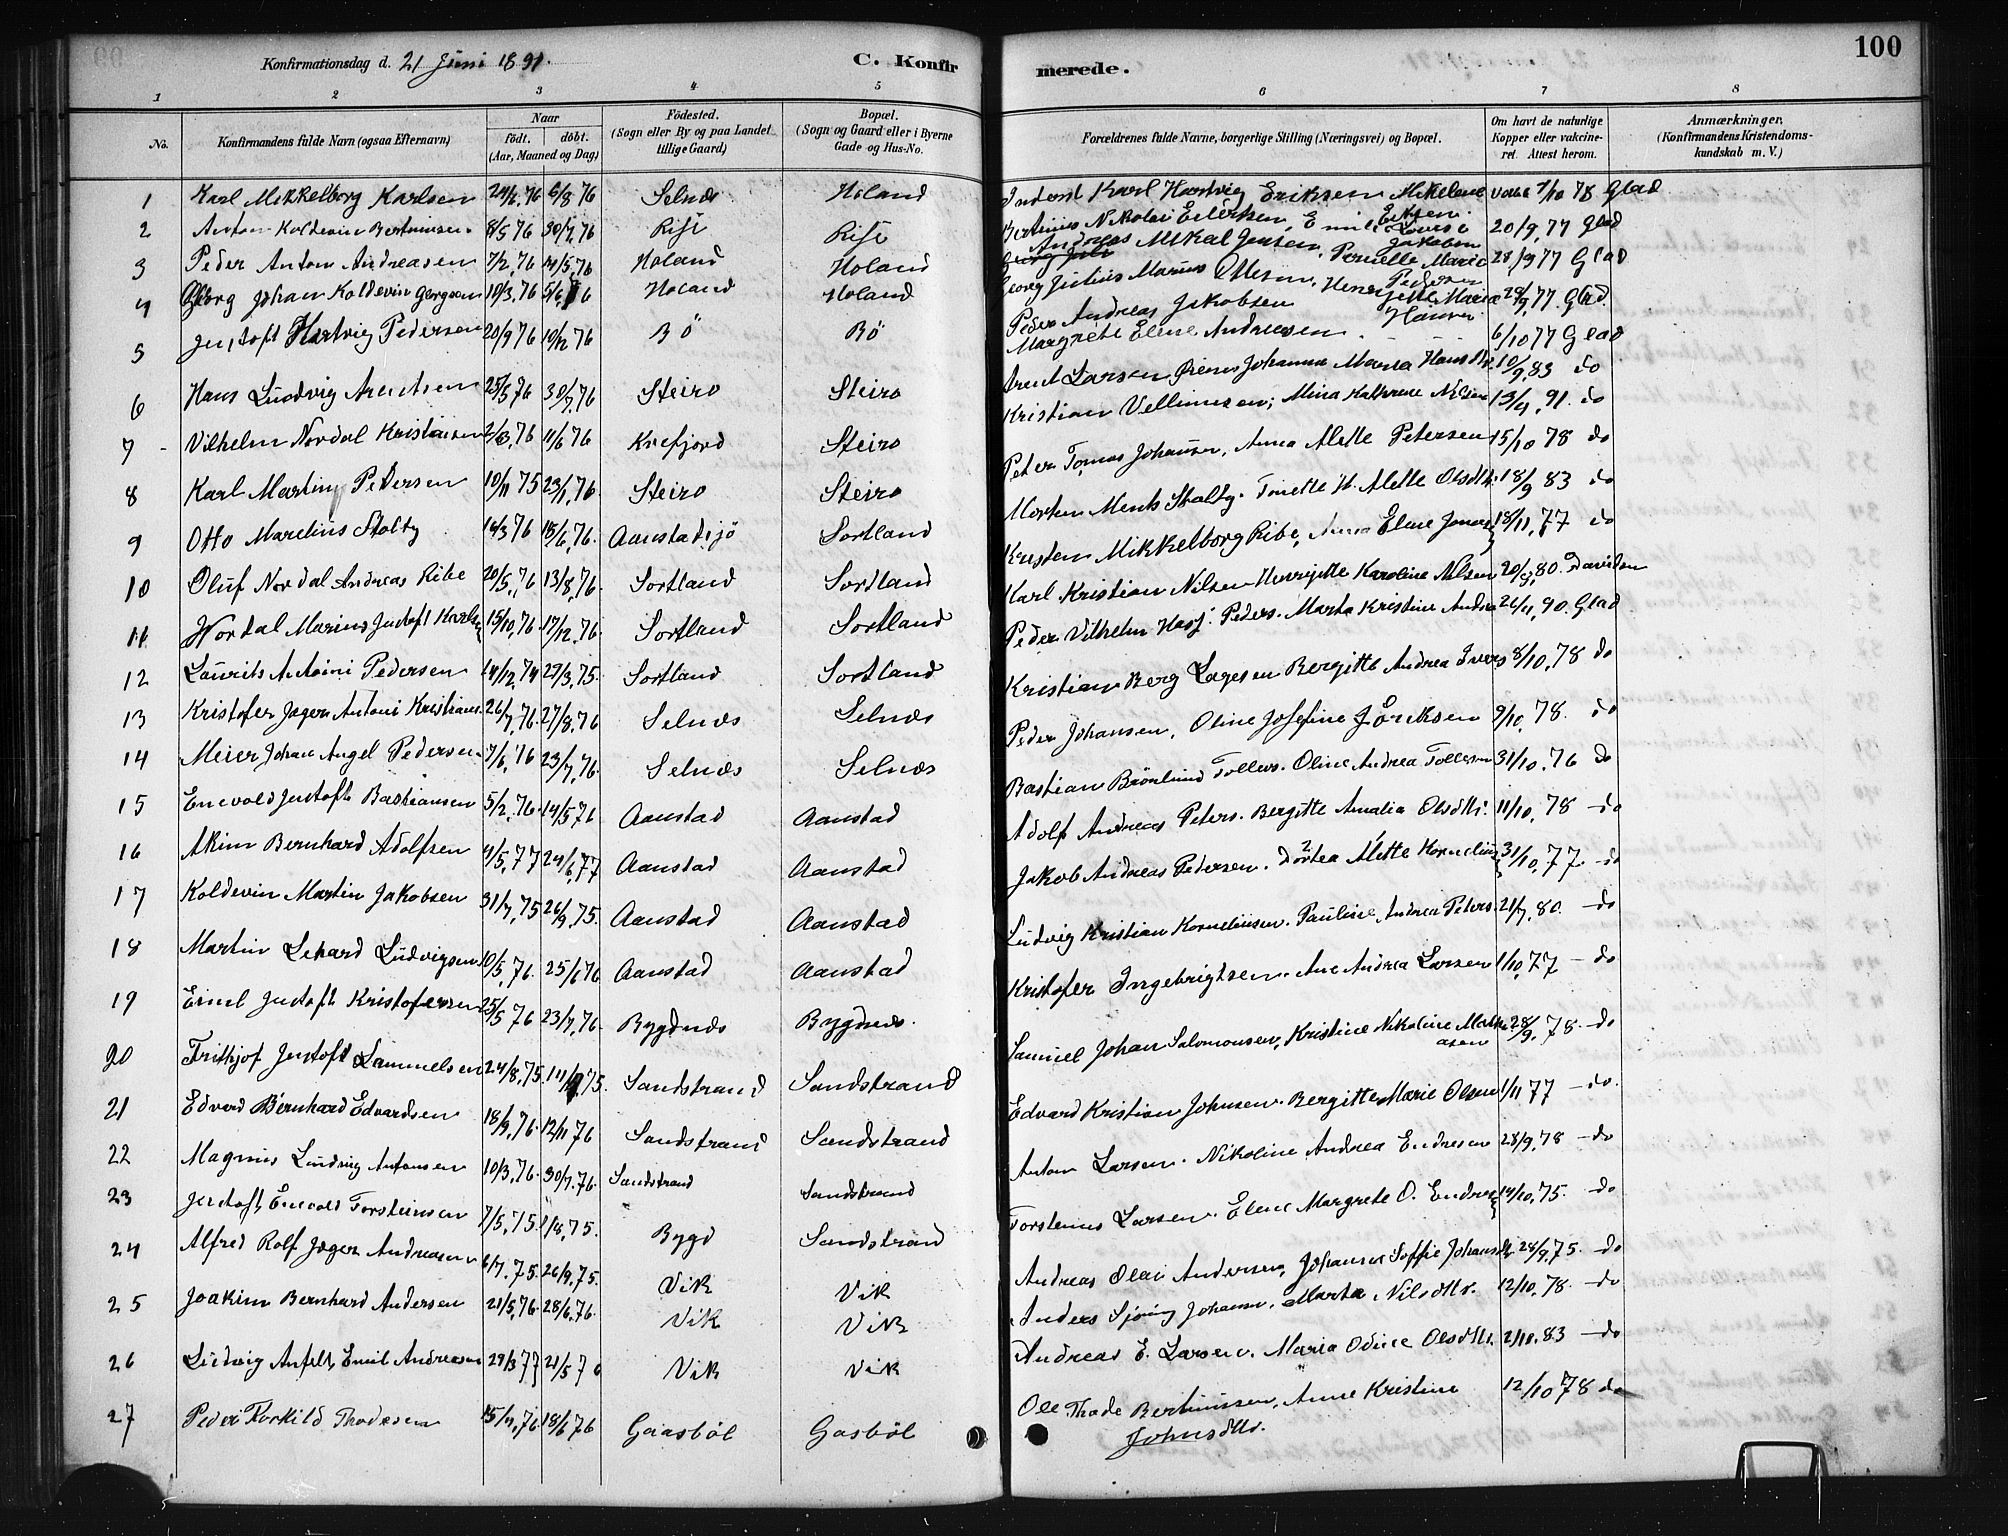 Konfirmationsdag d. 21 Juni 1891.
C. Konfir
merede.
100
1 2 3 4 5 6 7 8
No.
Konfirmandens fulde Navn (ogsaa Efternavn)
Naar
födt. döbt.
(Aar, Maaned og Dag)
Födested.
(Sogn eller By og paa Landet
tillige Gaard)
Bopæl.
(Sogn og Gaard eller i Byerne
Gade og Hus-No.
Forældrenes fulde Navne, borgerlige Stilling (Næringsvei) og Bopæl.
Om havt de naturlige
Kopper eller vakcine-
ret. Attest herom.
Anmærkninger.
(Konfirmandens Kristendoms-
kundskab m. V.)
1 Karl Mikkelborg Karlsen 6/8 76 Selnæs Holand Karl Hartvig Eriksen Mikeline 7/10 78 Glad
Eriksen
2 Anton Koldevin Bertinusen 8/5 76 30/7,76 Rise Rise Bertinus Nikolai Emilie Lovise 20/9,77 Glad
Jakobsen
3 Peder Anton Andreasen 7/2,76 14/5,76 Holand Holand Andreas Mikal Jensen, Pernille Marie 28/9 77 Glad
Pedersen
4 Georg Johan Koldevin Georgsen 10/3,76 Holand Holand Georg Julius Marius Ottesen, Henrijette Marie 28/9,77 Glad
Hansen
5 Justoft Hartvig Pedersen 20/9 76 10/12 76 Bö Bö Peder Andreas Jakobsen
Margrete Elene Andreasen 6/10 77 Glad
6 Hans Ludvig Arentsen 25/5 76 30/7,76 Steiro Steiro Arent Larsen Johanna Maria Hansdtr. 10/9,83 do
7 Vilhelm Nordal Kristiansen 11/6 76 Krefjord Steiro Kristian Vellumsen; Mina Kathrine Nilsen 13/4,91. do
8 Karl Martin Pedersen 10/11 75 23/1,76. Steiro Steiro Peter Tomas Johansen, Anna Alette Petersen 15/10 78 do
9 Otto Marelius Stolty 14/3 76 18/6,76. Aanstadsjö Sortland Morten Ments Stolty. Tonette H. Alette Olsdtr. 18/9 83 do
10 Oluf Nordal Andreas Ribe 20/5,76 13/8,76. Sortland Sortland Kristen Mikkelborg Ribe, Anna Eline Jonas 18/11,77 do
11 Nordal Marius Justoft Karlsen 15/10,76. 17/12,76. Sortland Sortland Karl Kristian Nilsen Henrijette Karoline Nilsen 20/9,80. Davidsen
12 Laurits Antoini Pedersen 14/12,74 27/3,75. Sortland Sortland Peder Vilhelm Hasj. Peders. Marta Kristine Andrea 26/4,90. Glad
13 Kristofer Jæger Antoni Kristians. 26/7,76. 27/8,76 Selnæs Selnæs Kristian Berg Lagesen Bergitte Andrea Ivers 8/10,78 do
14 Meier Johan Angel Pedersen 7/6,76 23/7,76. Selnæs Selnæs Peder Johansen, Oline Josefine J. Eriksen 9/10,78. do
15 Enevold Justoft Bastiansen 5/2,76. 14/5 76 Aanstad Aanstad Bastian Brönlund Tollefs. Oline Andrea Tollefsen 31/10.76 do
16 Akim Bernhard Adolfsen 4/5,77 24/6,77 Aanstad Aanstad Adolf Andreas Peters. Bergitte Amalia Olsdtr. 11/10,78 - do
17 Koldevin Martin Jakobsen 31/7,75 26/9,75. Aanstad Aanstad Jakob Andreas Pedersen. Dörtea Alette Kornelius 31/10,77. - do
18 Martin Lehard Ludvigsen 10/5,76. 25/6 76 Aanstad Aanstad Ludvig Kristian Korneliusen. Pauline Andrea Peters. 21/7,80. - do
19 Emil Justoft Kristofersen 25/5 76 23/7,76. Bygdnæs Bygdnæs. Kristofer Ingebrigtsen. Ane Andrea Larsen 1/10,77 - do
20 Frithjof Justoft Samuelsen 24/8,75. Sandstrand Sandstrand Samuel Johan Salomonsen, Kristine Nikoline Math 28/9,78. - do
asen
21 Edvard Bernhard Edvardsen 18/9,76. 12/11 76 Sandstrand Sandstrand Edvard Kristian Johnsen. Bergitte Marie Olsen 1/11 77 - do.
22 Magnus Ludvig Antonsen 10/3,76. 30/7.76. Sandstrand Sandstrand Anton Larsen. Nikoline Andrea Endresen 28/9,78 - do
23 Justoft Enevold Torsteinsen 7/5,75. 1/8,75. Bygd Sandstrand Torsteinus Larsen. Elene Margrete O. Endres 14/10,75. - do
24 Alfred Rolf Jæger Andreasen 6/7.75. 26/9.75. Vik Vik Andreas Olai Andersen, Johanna Soffie Johansdtr 24/9,75. - do
25 Joakim Bernhard Andersen 21/5,76. 28/6,76. Vik Vik Anders Sjöning Johansen. Marta Nilsdtr. 12/10,78. - do
26 Ludvig Anfelt Emil Andreasen 29/3 77 21/5 76 Vik Vik Andreas E. Larsen. Maria Odine Olsdtr. 2/10.83 - do
27 Peder Torkild Thodesen 15/4,76 18/6 76 Gaasböl Gasböl Ole Thode Bertinussen, Anne Kristine 12/10 78 do
Johnsdtr.